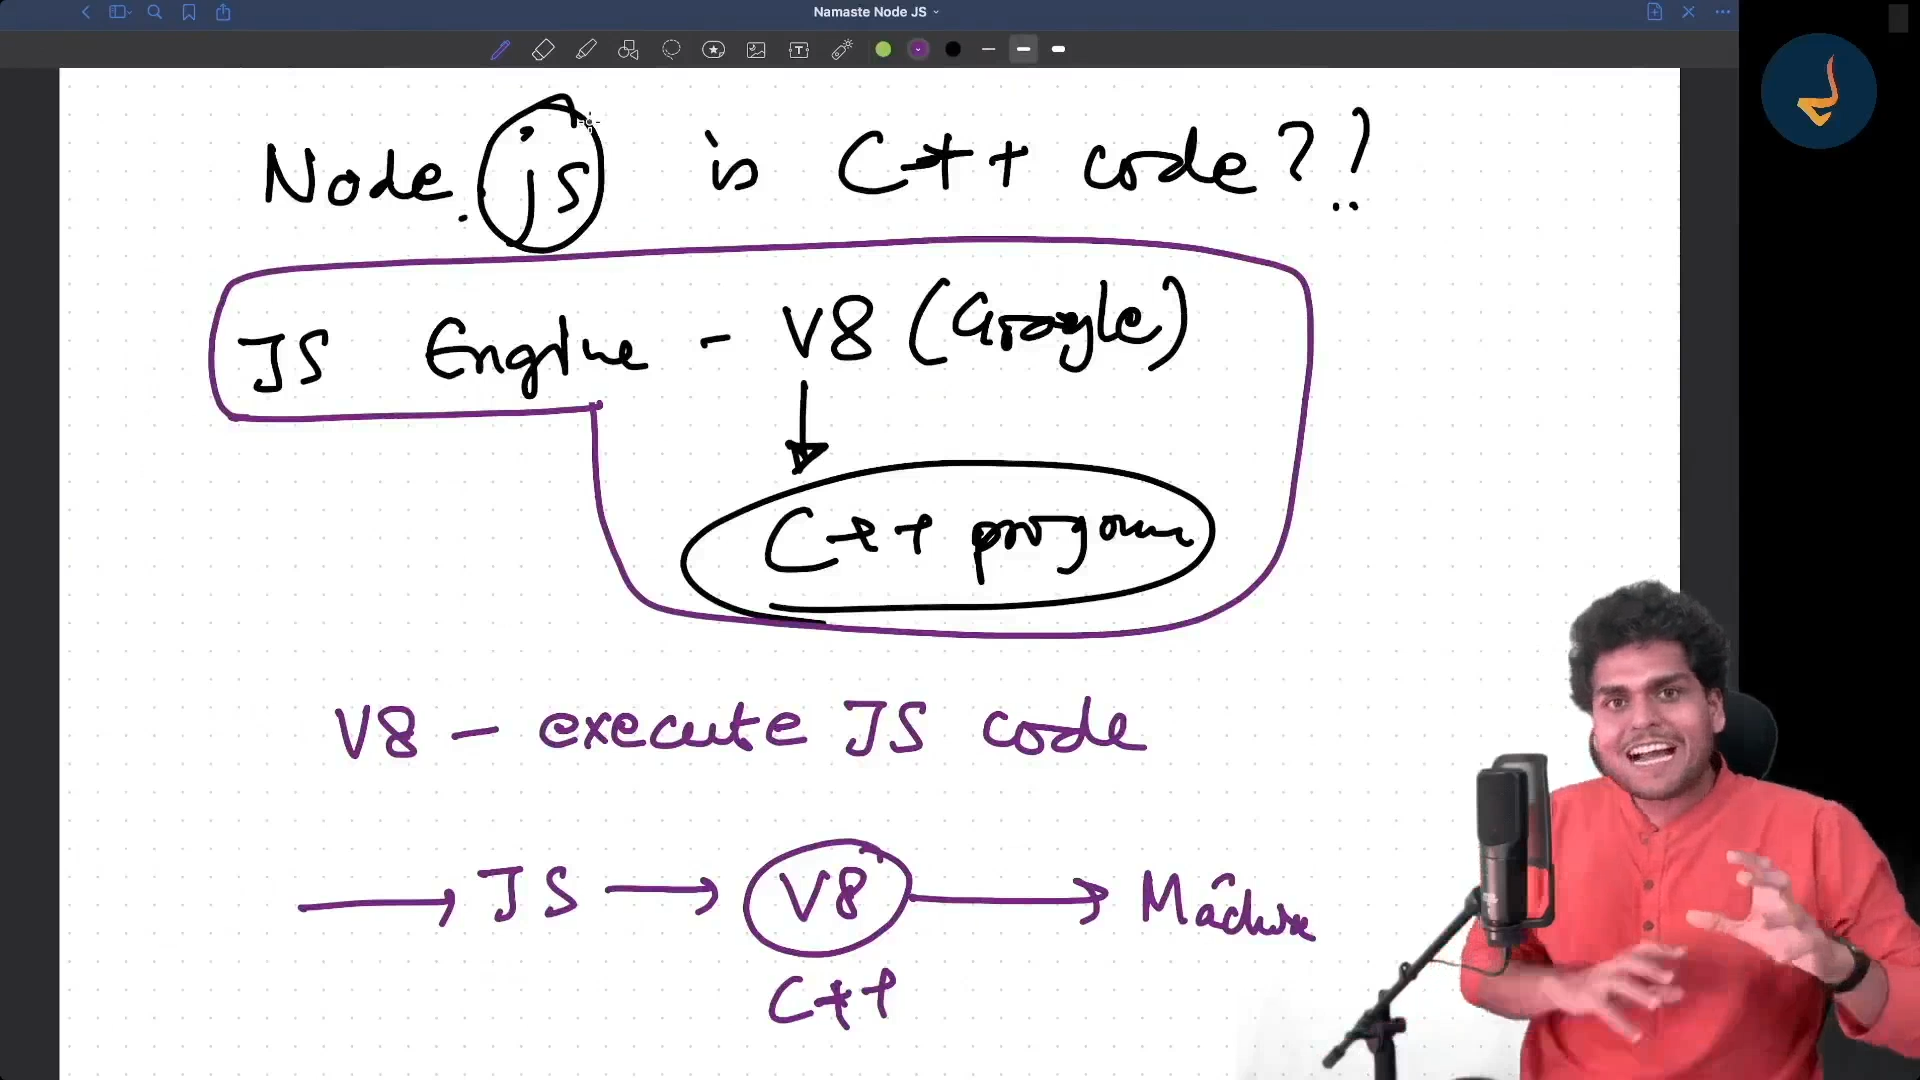 Namaste Node JS
Node.js is C++ code??
JS Engine - V8 (Google)
C++ program
V8 - execute JS code
JS V8 Machine
C++